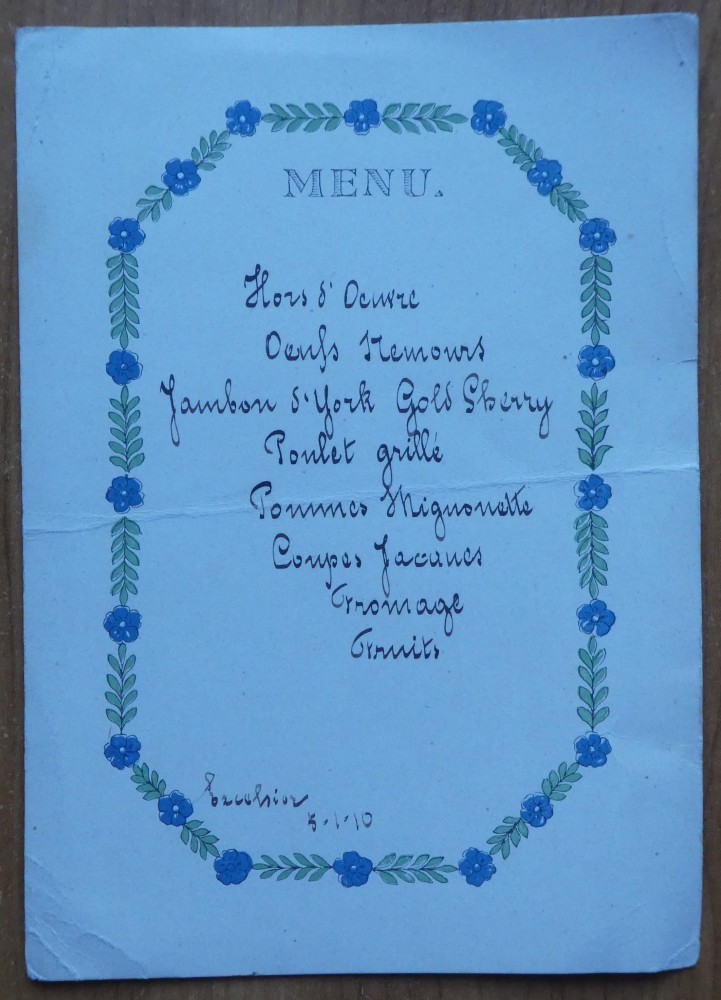 MENU.
Hors d'Oeuvre
Oeufs Nemours
Jambon d'York Gold Sherry
Poulet grillé
Pommes Mignonette
Coupes Jacques
Fromage
Fruits
Excelsior
5-1-10